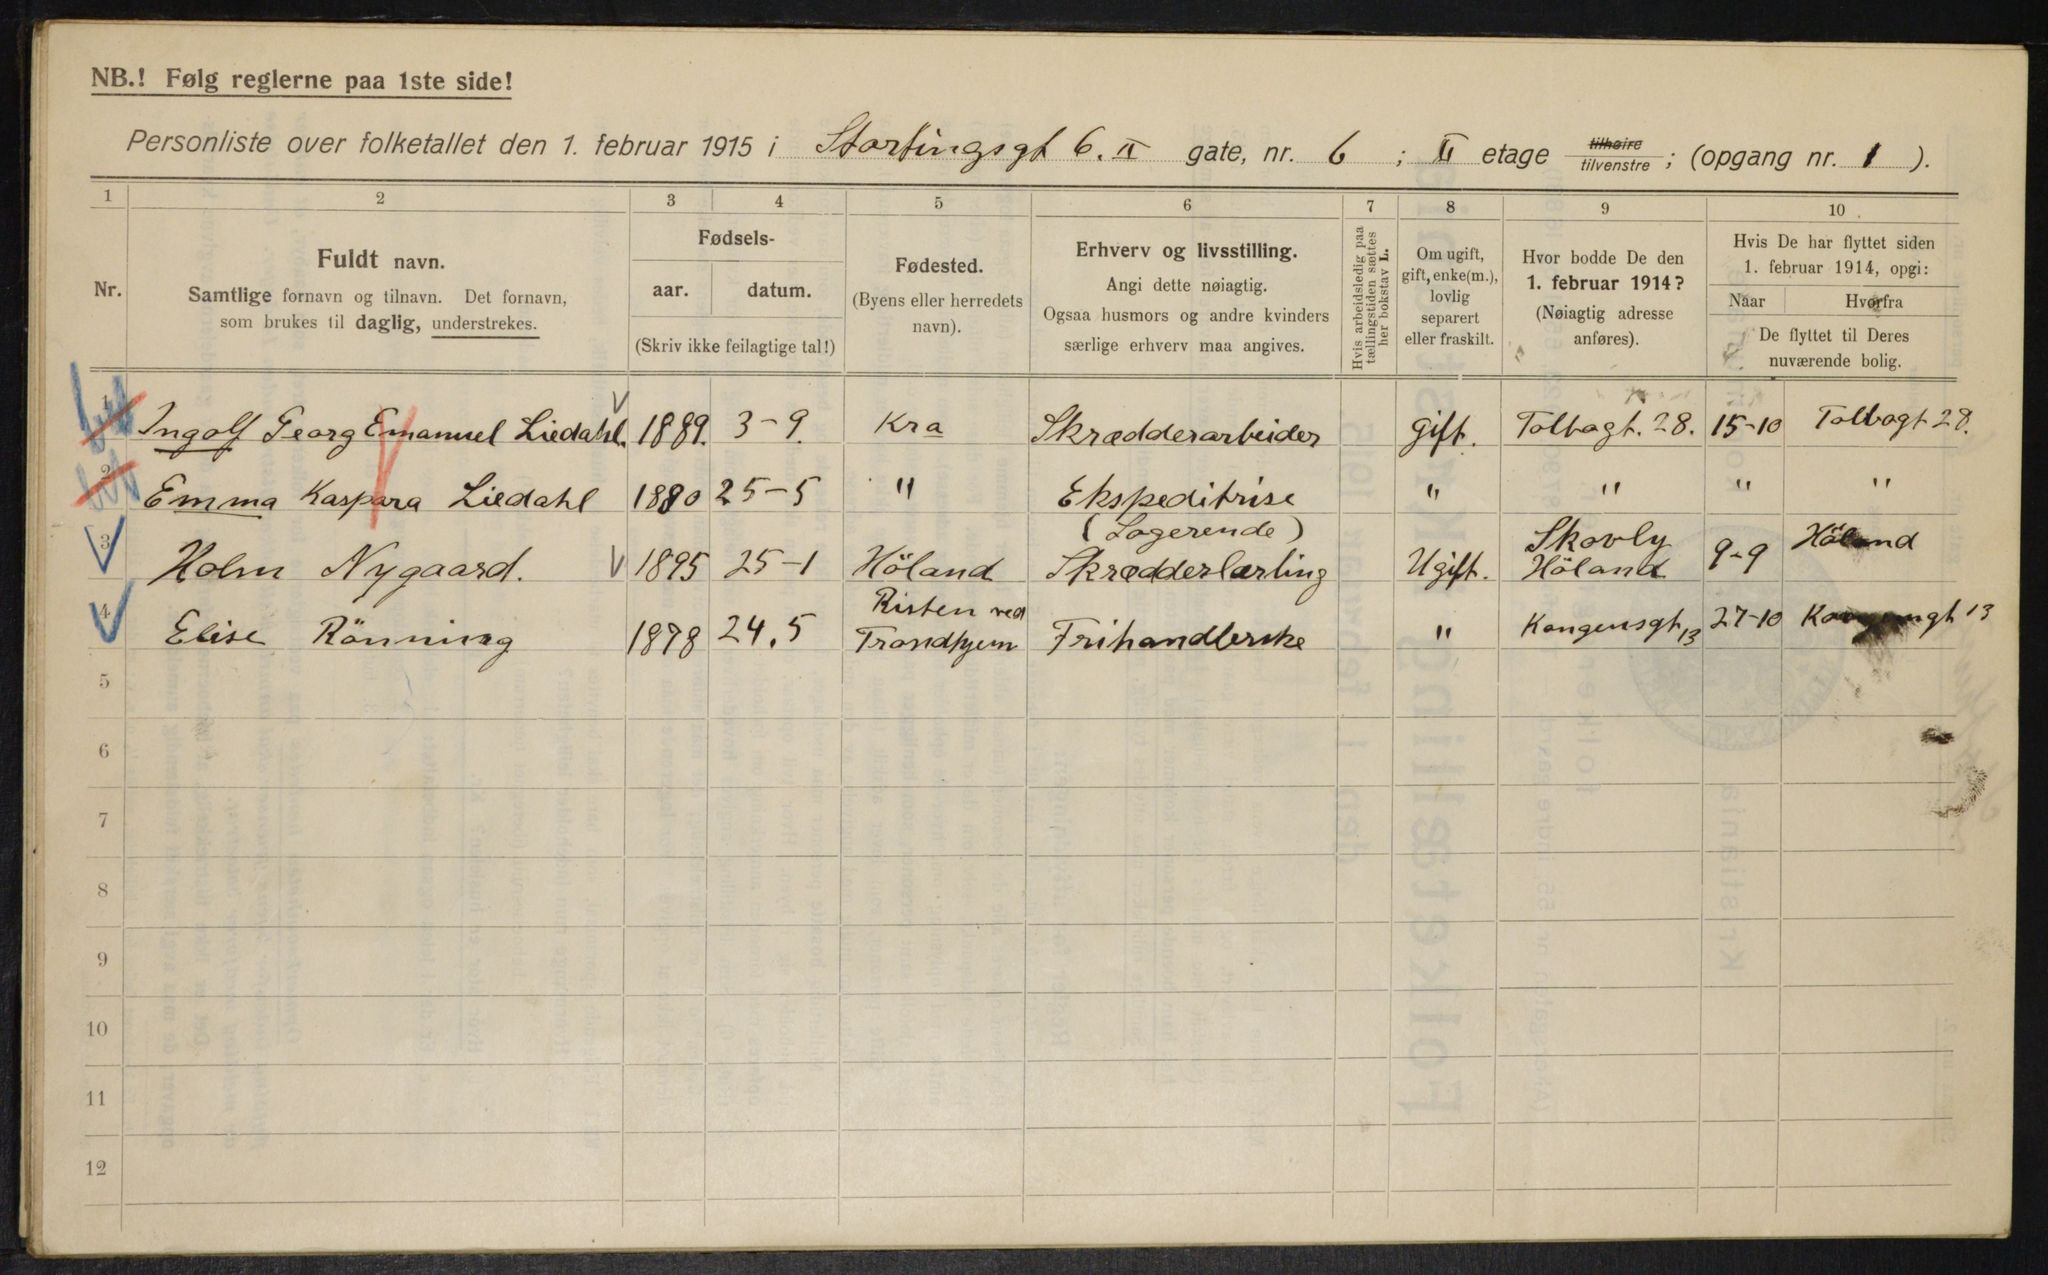 NB.! Følg reglerne paa 1ste side!
Personliste over folketallet den 1. februar 1915 i Stortingsgt 6. II gate, nr. 6 ; II etage tilhøire tilvenstre ; (opgang nr. 1 ).
1 2 3 4 5 6 7 8 9 10
Nr.
Fuldt navn.
Samtlige fornavn og tilnavn. Det fornavn,
som brukes til daglig, understrekes.
Fødsels-
aar. datum.
(Skriv ikke feilagtige tal!)
Fødested.
(Byens eller herredets
navn).
Erhverv og livsstilling.
Angi dette nøiagtig.
Ogsaa husmors og andre kvinders
særlige erhverv maa angives.
Hvis arbeidsledig paa
tællingstiden sættes
her bokstav L.
Om ugift,
gift, enke(m.),
lovlig
separert
eller fraskilt.
Hvor bodde De den
1. februar 1914?
(Nøiagtig adresse
anføres).
Hvis De har flyttet siden
1. februar 1914, opgi:
Naar Hvorfra
De flyttet til Deres
nuværende bolig.
1 Ingolf Georg Emanuel Liedahl. 1889. 3-9. Kra Skrædderarbeider gift. Tolbogt. 28. 15-10 Tolbogt 28.
2 Emma Kaspara Liedahl 1880 25-5 " Ekspeditrise " " " "
(Logerende)
3 Holm Nygaard. 1895 25-1 Höland Skrædderlærling Ugift. Skovly Höland 9-9 Höland
4 Elise Rönning 1878 24.5 Risten ved Trondhjem Frihandlerske " Kongensgt 13 27-10 Kongensgt 13
5
6
7
8
9
10
11
12